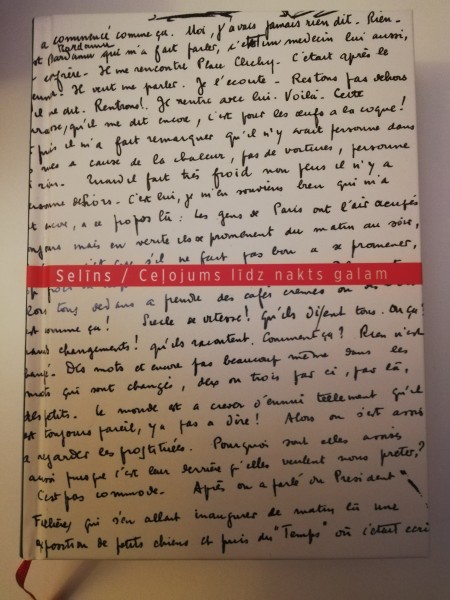 a commencé comme ça. Moi, j'avais jamais rien dit. Rien.
Bardamu
Bardamu qui m'a fait parler, c'était un medecin lui aussi,
cofrère. On me rencontre Place Clichy. C'était après le
Il veut me parler. Je l'ecoute. Restons pas dehors
il me dit. Rentrons!. Je rentre avec lui. Voilà. Cette
qu'il me dit encore, c'est pour les œufs a la coque!
puis il m'a fait remarquer qu'il n'y avait personne dans
rues a cause de la chaleur, pas de voitures, personne
rien. Quand il fait très froid non plus il n'y a
dehors. C'est lui, je m'en souviens bien qui m'a
a ce propos là: les gens de Paris ont l'air occupés
mais en verité ils se promenent du matin au soir,
il ne fait pas bon a se promener,
Selīns / Ceļojums līdz nakts galam
tous dedans a prendre des cafés crèmes ou des
comme ça! Siecle de vitesse! Qu'ils disent tous. Ou ça?
changements! qu'ils racontent. Comment ça? Rien n'est
Des mots et encore pas beaucoup même dans les
mots qui sont changés, deux ou trois par ci, par là,
petits. Le monde est a crever d'ennui tellement qu'il
est toujours pareil, y a pas a dire! Alors on s'est assis
a regarder les prostituées. Pourquoi sont elles assis
aussi puisque c'est leur derrière qu'elles veulent nous preter?
C'est pas commode. Après on a parlé du President
qui s'en allait inaugurer ce matin là une
exposition de petits chiens et puis du "Temps" où c'était ecrit